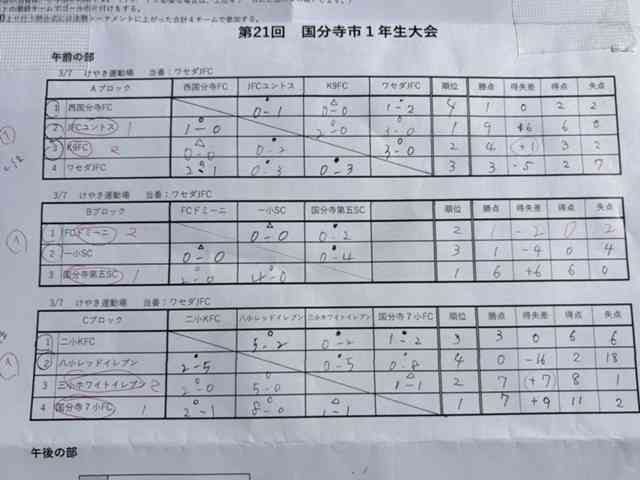 の最終チームでゴールの片付けをする。
上より行う閉会式には決勝トーナメントに上がった合計4チームで参加する。
第21回 国分寺市1年生大会
午前の部
3/7 けやき運動場 当番：ワセダJFC
Aブロック 西国分寺FC JFCユントス K9FC ワセダJFC 順位 勝点 得失差 得点 失点
1 西国分寺FC 0-1 0-0 1-2 4 1 0 2 2
2 JFCユントス 1 1-0 2-0 3-0 1 9 +6 6 0
3 K9FC 2 0-0 0-2 3-0 2 4 (+1) 3 2
4 ワセダJFC 2-1 0-3 0-3 3 3 -5 2 7
3/7 けやき運動場 当番：ワセダJFC
Bブロック FCドミーニ 一小SC 国分寺第五SC 順位 勝点 得失差 得点 失点
1 FCドミーニ 2 0-0 0-2 2 1 -2 0 2
2 一小SC 0-0 0-4 3 1 -4 0 4
3 国分寺第五SC 1 2-0 4-0 1 6 +6 6 0
3/7 けやき運動場 当番：ワセダJFC
Cブロック 二小KFC 八小レッドイレブン 三小ホワイトイレブン 国分寺7小FC 順位 勝点 得失差 得点 失点
1 二小KFC 5-2 0-2 1-2 3 3 0 6 6
2 八小レッドイレブン 2-5 0-5 0-8 4 0 -16 2 18
3 三小ホワイトイレブン 2 2-0 5-0 1-1 2 7 (+7) 8 1
4 国分寺7小FC 1 2-1 8-0 1-1 1 7 +9 11 2
午後の部